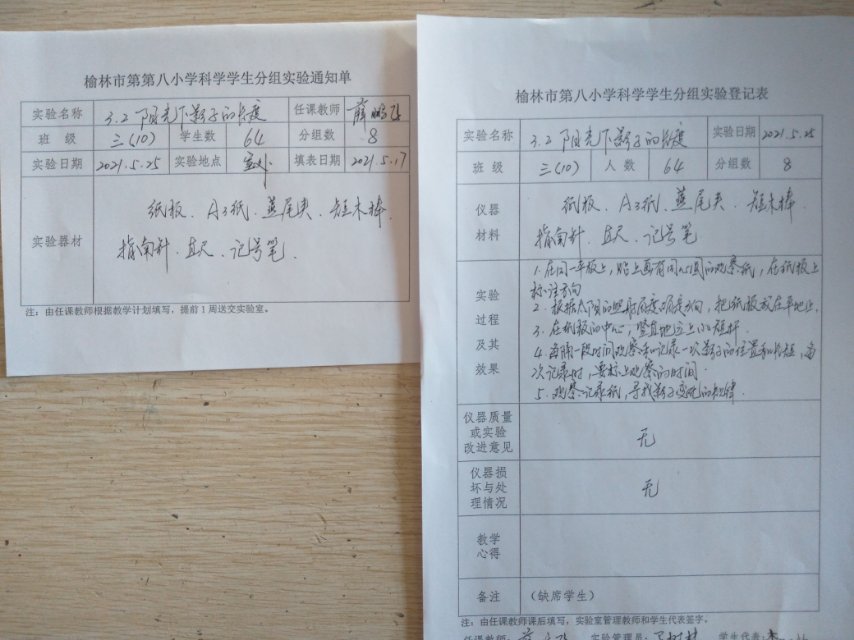 榆林市第第八小学科学学生分组实验通知单
实验名称 3.2 阳光下影子的长度 任课教师 薛鹏飞
班 级 三(10) 学生数 64 分组数 8
实验日期 2021.5.25 实验地点 室外 填表日期 2021.5.17
实验器材
纸板、A3纸、燕尾夹、短木棒、
指南针、直尺、记号笔、
注:由任课教师根据教学计划填写,提前1周送交实验室。
榆林市第八小学科学学生分组实验登记表
实验名称 3.2 阳光下影子的长度 实验日期 2021.5.25
班 级 三(10) 人 数 64 分组数 8
仪器
材料
纸板、A3纸、燕尾夹、短木棒、
指南针、直尺、记号笔
实验
过程
及其
效果
1.在同一平板上,贴上画有同心圆的观察纸,在纸板上
标注方向
2.根据太阳的照射 确定方向,把纸板放在平地上.
3.在纸板的中心,竖直地立上小旗杆.
4.每隔一段时间观察和记录一次影子的位置和长短,每
次记录时,要标上观察的时间.
5.观察记录纸,寻找影子变化的规律.
仪器质量
或实验
改进意见
无
仪器损
坏与处
理情况
无
教学
心得
备注 (缺席学生)
注:由任课教师课后填写,实验室管理教师和学生代表签字。
任课教师: 实验管理员: 学生代表: